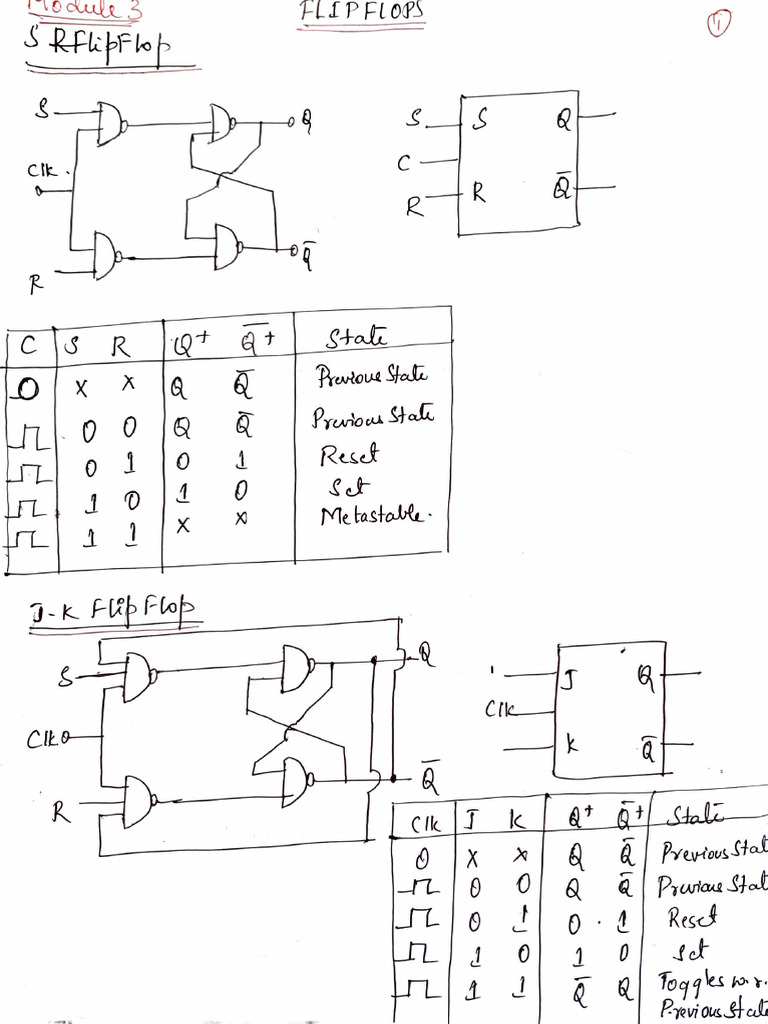 Module 3
FLIPFLOPS
1
S R FlipFlop
S
Q
Clk.
R
Q̅
S S Q
C
R R Q̅
C S R Q+ Q̅+ State
0 x x Q Q̅ Previous State
0 0 Q Q̅ Previous State
0 1 0 1 Reset
1 0 1 0 Set
1 1 x x Metastable.
J-K FlipFlop
S
Q
Clk
R
Q̅
J Q
Clk
K Q̅
Clk J K Q+ Q̅+ State
0 x x Q Q̅ Previous Stat
0 0 Q Q̅ Previous Stat
0 1 0 1 Reset
1 0 1 0 Set
1 1 Q̅ Q Toggles w.r.
Previous State